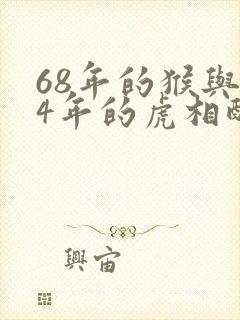 68年的猴與
4年的虎相配
興宙